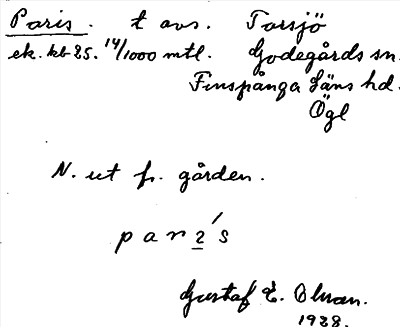 Paris. t avs. Torsjö
ek. kb 25. 14/1000 mtl. Godegårds sn.
Finspånga Läns hd.
Ögl
N. ut fr. gården.
parı́s
Gustaf E. Ohman.
1928.